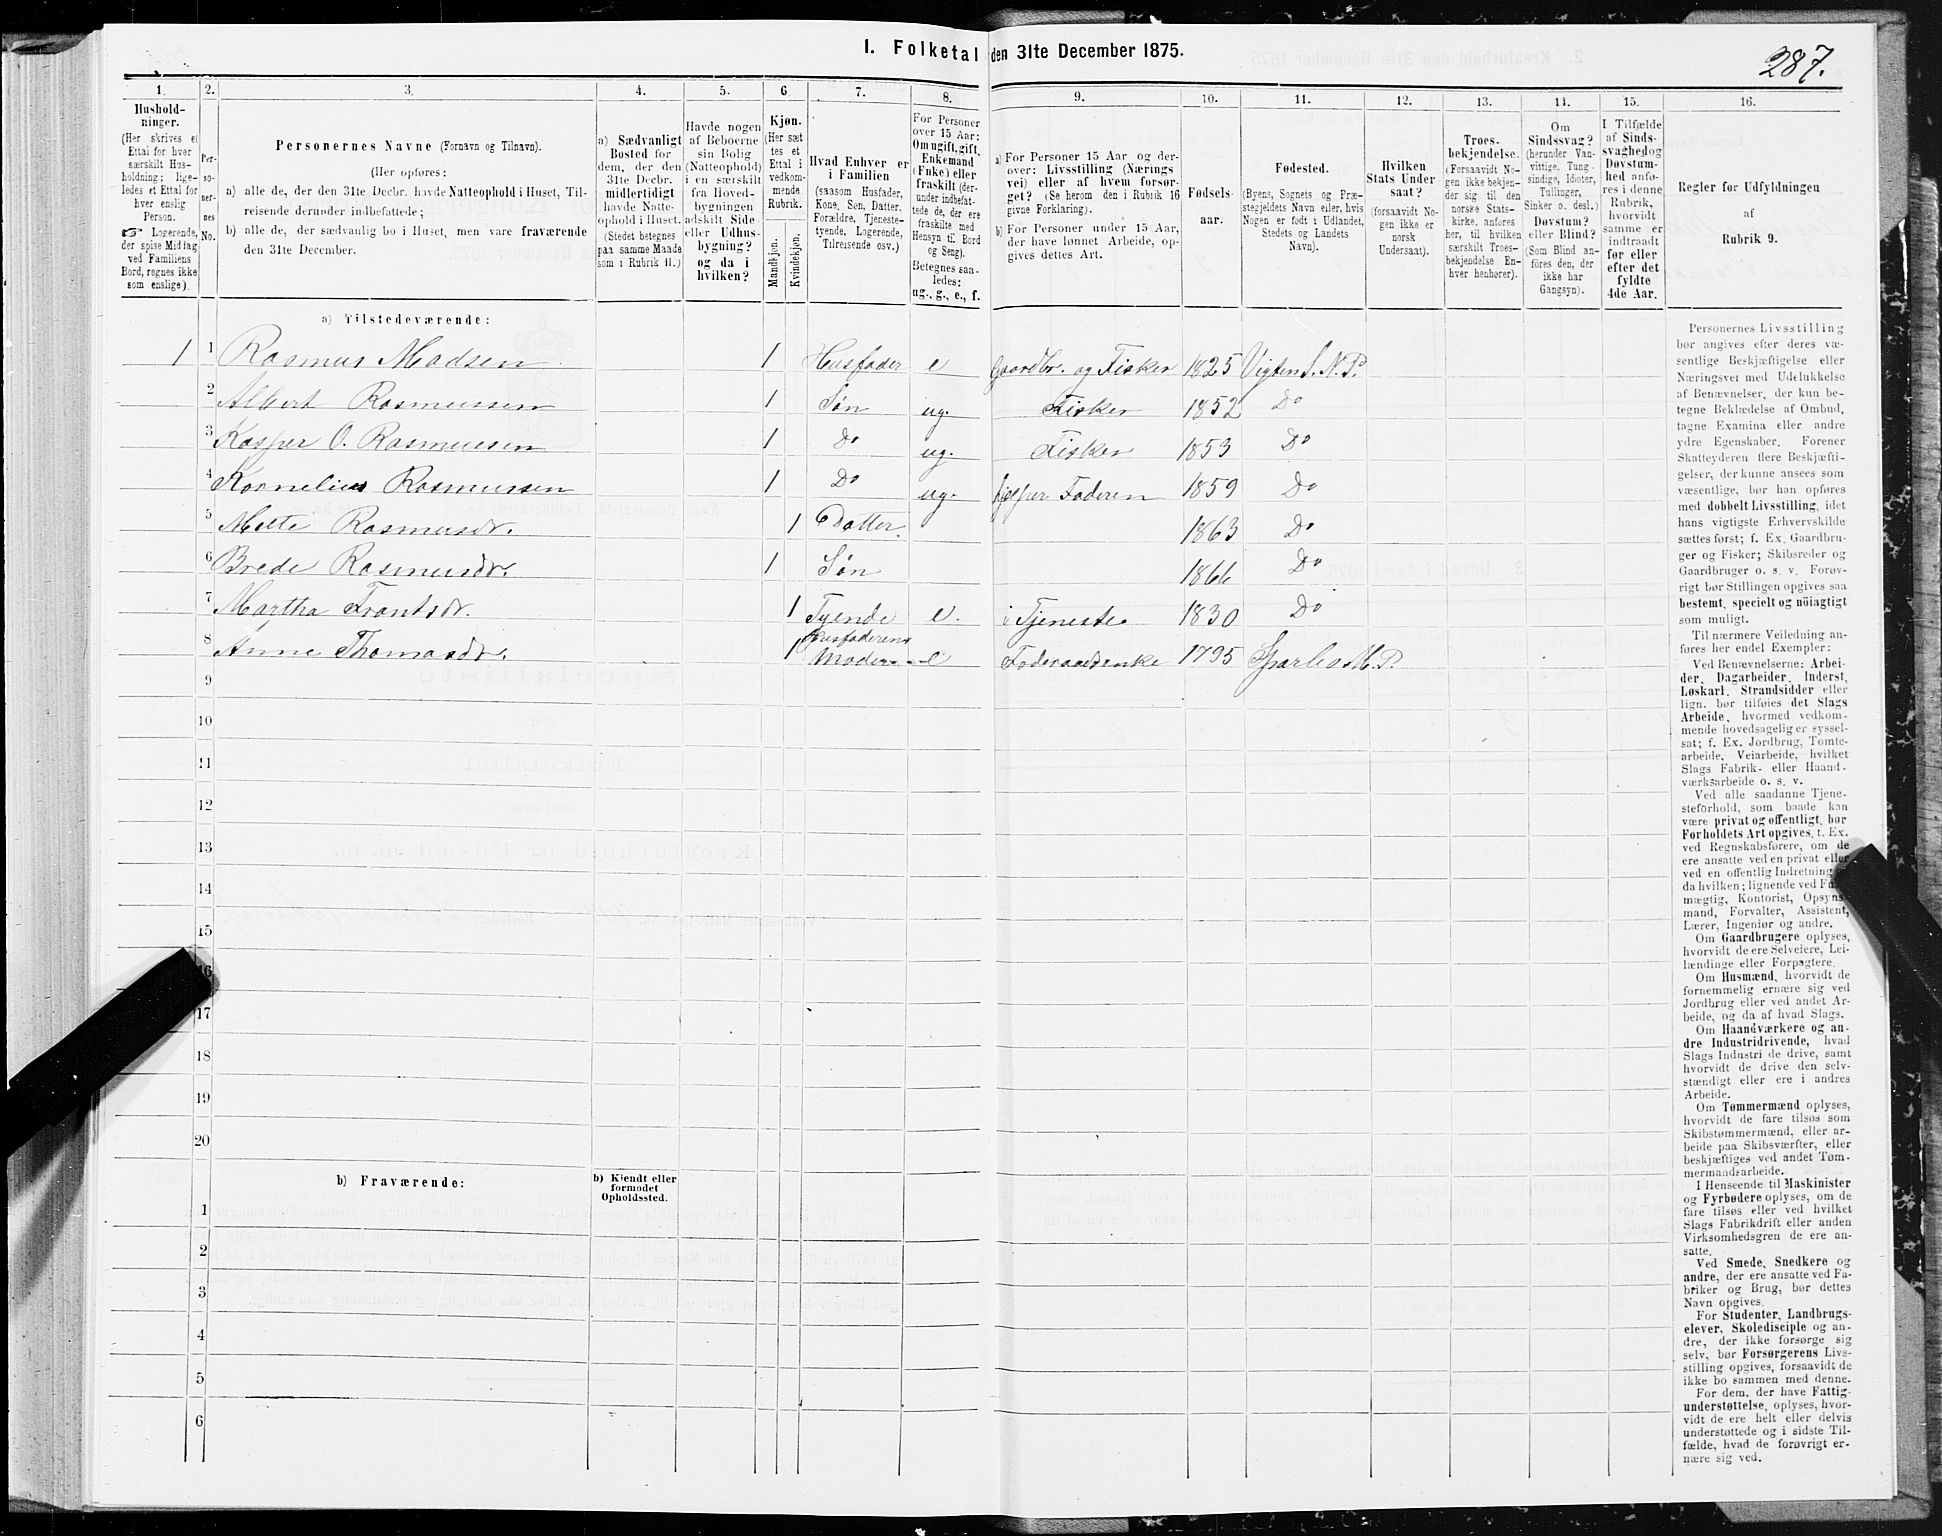 I. Folketal den 31te December 1875.
287.
1. 2. 3. 4. 5. 6. 7. 8. 9. 10. 11. 12. 13. 14. 15. 16.
Hushold-
ninger.
(Her skrives et
Ettal for hver
særskilt Hus-
holdning; lige-
ledes et Ettal for
hver enslig
Person.
☞ Logerende,
der spise Middag
ved Familiens
Bord, regnes ikke
som enslige).
Per-
so-
ner-
nes
No.
Personernes Navne (Fornavn og Tilnavn).
(Her opføres:
a) alle de, der den 31te Decbr. havde Natteophold i Huset, Til-
reisende derunder indbefattede;
b) alle de, der sædvanlig bo i Huset, men vare fraværende
den 31te December.
a) Sædvanligt
Bosted for
dem, der den
31te Decbr.
midlertidigt
havde Natte-
ophold i Huset.
(Stedet betegnes
paa samme Maade
som i Rubrik 11.)
Havde nogen
af Beboerne
sin Bolig
(Natteophold)
i en særskilt
fra Hoved-
bygningen
adskilt Side-
eller Udhus-
bygning?
og da i
hvilken?
Kjøn.
(Her sæt
tes et
Ettal i
vedkom-
mende
Rubrik.
Mandkjøn.
Kvindekjøn.
Hvad Enhver er
i Familien
(saasom Husfader,
Kone, Søn, Datter,
Forældre, Tjeneste-
tyende, Logerende,
Tilreisende osv.)
For Personer
over 15 Aar:
Om ugift, gift,
Enkemand
(Enke) eller
fraskilt (der-
under indbefat-
tede de, der ere
fraskilte med
Hensyn til Bord
og Seng).
Betegnes saa-
ledes:
ug., g., e., f.
a) For Personer 15 Aar og der-
over: Livsstilling (Nærings
vei) eller af hvem forsør-
get? (Se herom den i Rubrik 16
givne Forklaring).
b) For Personer under 15 Aar,
der have lønnet Arbeide, op-
gives dettes Art.
Fødsels-
aar.
Fødested.
(Byens, Sognets og Præ-
stegjeldets Navn eller, hvis
Nogen er født i Udlandet,
Stedets og Landets
Navn).
Hvilken
Stats Under
saat?
(forsaavidt No-
gen ikke er
norsk
Undersaat).
Troes-
bekjendelse.
(Forsaavidt No-
gen ikke bekjen-
der sig til den
norske Stats-
kirke, anføres
her, til hvilken
særskilt Troes-
bekjendelse En-
hver henhører).
Om
Sindssvag?
(herunder Van-
vittige, Tung-
sindige, Idioter,
Tullinger,
Sinker o. desl.)
Døvstum?
eller Blind?
(Som Blind an-
føres den, der
ikke har
Gangsyn).
I Tilfælde
af Sinds-
svaghed og
Døvstum-
hed anfø-
res i denne
Rubrik,
hvorvidt
samme er
indtraadt
før eller
efter det
fyldte
4de Aar.
Regler for Udfyldningen
af
Rubrik 9.
a) Tilstedeværende:
1 1 Rasmus Madsen 1 Husfader e Gaardbr. og Fisker 1825 Vigten S. N. P.
2 Albert Rasmussen 1 Søn ug. Fisker 1852 Do
3 Kasper O. Rasmussen 1 Do ug. Fisker 1853 Do
4 Kornelius Rasmussen 1 Do ug. hjelper Faderen 1859 Do
5 Mette Rasmusdr. 1 Datter 1863 Do
6 Brede Rasmusdr. 1 Søn 1866 Do
7 Martha Frantsdr. 1 Tyende e. i Tjeneste 1830 Do
8 Anne Thomasdr. 1 Husfaderens Moder e Føderaadsenke 1795 Sparbo M. P.
9
10
11
12
13
14
15
16
17
18
19
20
b) Fraværende:
b) Kjendt eller
formodet
Opholdssted.
1
2
3
4
5
6
Personernes Livsstilling
bør angives efter deres væ-
sentlige Beskjæftigelse eller
Næringsvei med Udelukkelse
af Benævnelser, der kun be-
tegne Beklædelse af Ombud,
tagne Examina eller andre
ydre Egenskaber. Forener
Skatteyderen flere Beskjæfti-
gelser, der kunne ansees som
væsentlige, bør han opføres
med dobbelt Livsstilling, idet
hans vigtigste Erhvervskilde
sættes først; f. Ex. Gaardbru-
ger og Fisker; Skibsreder og
Gaardbruger o. s. v. Forøv-
rigt bør Stillingen opgives saa
bestemt, specielt og nöiagtigt
som muligt.
Til nærmere Veiledning an-
føres her endel Exempler:
Ved Benævnelserne: Arbei-
der, Dagarbeider, Inderst,
Løskarl, Strandsidder eller
lign. bør tilføies det Slags
Arbeide, hvormed vedkom-
mende hovedsagelig er syssel-
sat; f. Ex. Jordbrug, Tomte-
arbeide, Veiarbeide, hvilket
Slags Fabrik- eller Haand-
værksarbeide o. s. v.
Ved alle saadanne Tjene-
steforhold, som baade kan
være privat og offentligt, bør
Forholdets Art opgives, t. Ex.
ved Regnskabsførere, om de
ere ansatte ved en privat eller
ved en offentlig Indretning
da hvilken; lignende ved
mægtig, Kontorist, Opsyns-
mand, Forvalter, Assistent,
Lærer, Ingeniør og andre.
Om Gaardbrugere oplyses,
hvorvidt de ere Selveiere, Lei-
lændinge eller Forpagtere.
Om Husmænd, hvorvidt de
fornemmelig ernære sig ved
Jordbrug eller ved andet Ar-
beide, og da af hvad Slags.
Om Haandværkere og an-
dre Industridrivende, hvad
Slags Industri de drive, samt
hvorvidt de drive den selv-
stændigt eller ere i andres
Arbeide.
Om Tømmermænd oplyses,
hvorvidt de fare tilsøs som
Skibstømmermænd, eller ar-
beide paa Skibsværfter, eller
beskjæftiges ved andet Tøm-
mermandsarbeide.
I Henseende til Maskinister
og Fyrbødere oplyses, om de
fare tilsøs eller ved hvilket
Slags Fabrikdrift eller anden
Virksomhedsgren de ere an-
satte.
Ved Smede, Snedkere og
andre, der ere ansatte ved Fa-
briker og Brug, bør dettes
Navn opgives.
For Studenter, Landbrugs-
elever, Skoledisciple og an-
dre, der ikke forsørge sig
selv, bør Forsørgerens Livs-
stilling opgives, forsaavidt de
ikke bo sammen med denne.
For dem, der have Fattig-
understøttelse, oplyses, hvor-
vidt de ere helt eller delvis
understøttede og i sidste Til-
fælde, hvad de forøvrigt er-
nære sig ved.